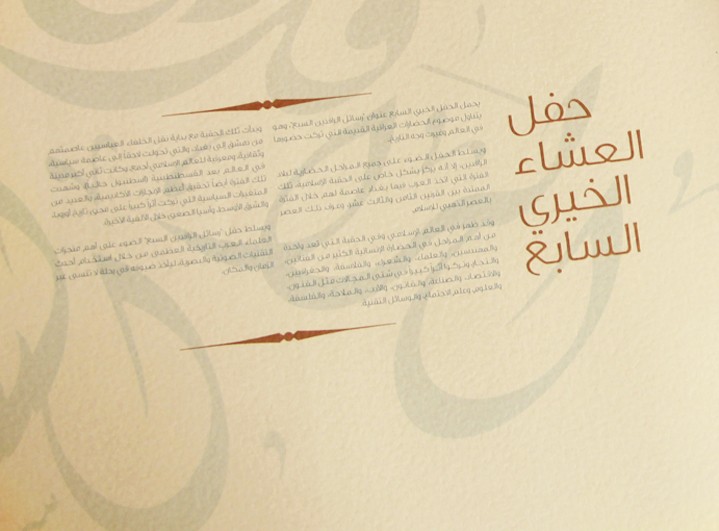 حفل
العشاء
الخيري
السابع
يحمل الحفل الخيري السابع عنوان "رسائل الرافدين السبع"، وهو
يتناول موضوع الحضارات العراقية القديمة التي تركت حضورها
في العالم وغيرت وجه التاريخ.
ويسلط الحفل الضوء على جميع المراحل الحضارية لبلاد
الرافدين، إذ أنه يركز بشكل خاص على الحقبة الإسلامية، تلك
الفترة التي اتخذ العرب فيها بغداد عاصمة لهم خلال الفترة
الممتدة بين القرنين الثامن والثالث عشر، وعرف ذلك العصر
بالعصر الذهبي للإسلام.
وقد ظهر في العالم الإسلامي وفي الحقبة التي تعد واحدة
من أهم المراحل في الحضارة الإنسانية الكثير من الفنانين،
والمهندسين، والعلماء، والشعراء، والفلاسفة، والجغرافيين،
والتجار، وتركوا أثراً كبيراً في شتى المجالات مثل الفنون،
والاقتصاد، والصناعة، والقانون، والأدب، والملاحة، والفلسفة،
والعلوم، وعلم الاجتماع، والوسائل التقنية.
وبدأت تلك الحقبة مع بداية نقل الخلفاء العباسيين عاصمتهم
من دمشق إلى بغداد، والتي تحولت لاحقاً إلى عاصمة سياسية،
وثقافية، ومعرفية للعالم الإسلامي أجمع، وكانت ثاني أكبر مدينة
في العالم بعد القسطنطينية (اسطنبول حالياً). وشهدت
تلك الفترة أيضاً تحقيق أعظم الإنجازات الأكاديمية، والعديد من
المتغيرات السياسية التي تركت أثراً كبيراً على مجرى تاريخ أوروبا،
والشرق الأوسط، وآسيا الصغرى خلال الألفية الأخيرة.
ويسلط حفل "رسائل الرافدين السبع" الضوء على أهم منجزات
العلماء العرب التاريخية العظمى من خلال استخدام أحدث
التقنيات الصوتية والبصرية، ليأخذ ضيوفه في رحلة لا تنسى عبر
الزمان والمكان.